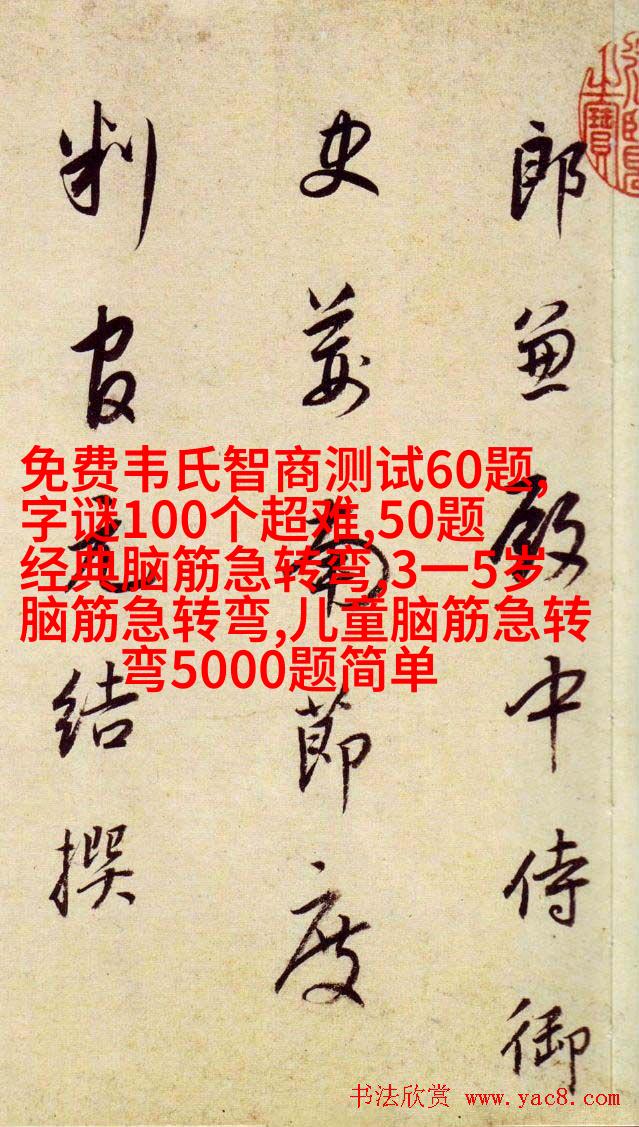 郎兼殿中侍御
史荆南節度
判官元結撰
免费韦氏智商测试60题,
字谜100个超难,50题
经典脑筋急转弯,3一5岁
脑筋急转弯,儿童脑筋急转
弯5000题简单
书法欣赏 www.yac8.com